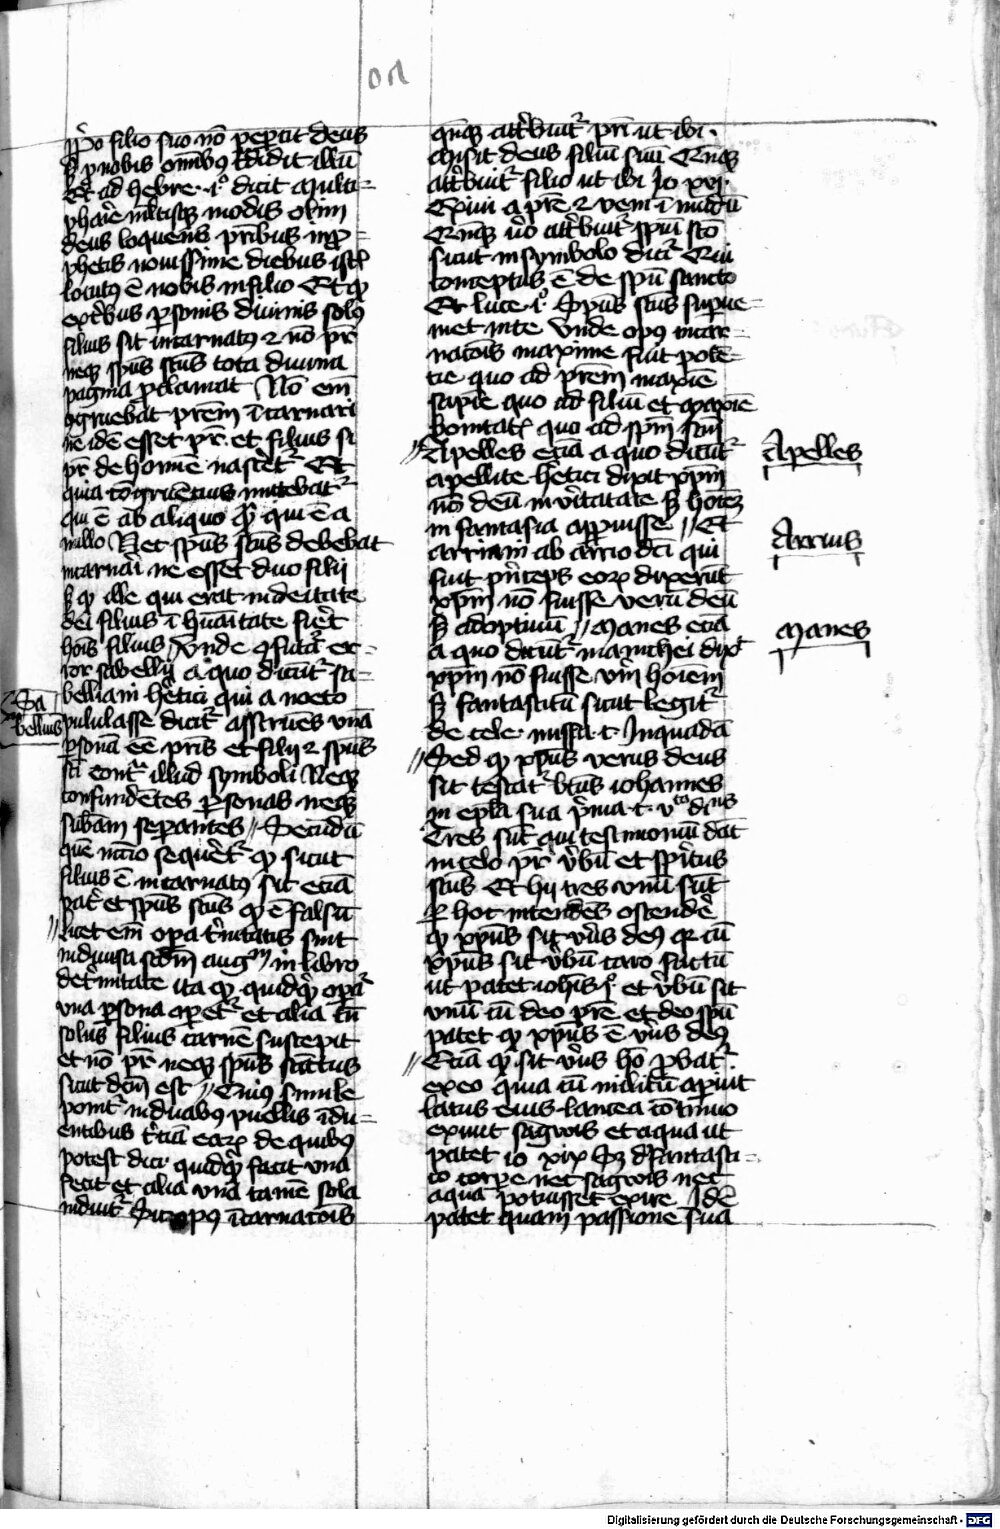 ꝓpo filio suo nō peꝑcit deus
sꝫ ꝓ nobis om̄ibꝯ tͣdidit illū
Et ad hebre· i° dicit mlti=
phaꝛ̄e mltisqꝫ modis olim
deus loquens pr̄ibus in ꝓ=
phetis nouissime diebus istꝭ
locutꝯ ē nobis in filio Et qꝫ
ex tͥbus ꝑsonis diuinis solꝯ
filius sit incarnatꝯ ⁊ nō pr̄
neqꝫ spūs scūs tota diuina
pagina ꝓclamat Nō em̄
ꝯgruebat prēm īcarnari
ne idē esset pr̄ et filius si
pr̄ de homīe nascēt᷑ Et
quia cōgruēcius mittebat᷑
qui ē ab aliquo qͣꝫ qui ē a
nullo Nec spūs scūs debebat
incarnāi ne essēt duo filij
sꝫ qꝫ ille qui erat in deitate
dei filius ī hūāitate fieꝛ̄t
hoīs filius // Vnde ꝯfutat᷑ er=
ror sabellij a quo dicūt᷑ sa=
belliani hētici qui a noeto
pululasse dicit᷑ asserūes vnā
ꝑsonā eē pr̄is et filij ⁊ spūs
scī contͣ illud symboli Neqꝫ
confundētes ꝑsonas neqꝫ
subām seperantes // Secūdū
quē mͣcio sequēt᷑ qꝫ sicut
filius ē incarnatꝯ sic eciā
pat̄ et spūs scūs qꝫ ē falsū
// licet em̄ opa tͥnitatis sint
indiuisa scdm̄ augͫ in libro
de tͥnitate ita qꝫ quidqͥd opat᷑
vna ꝑsona opet᷑ et alia tn̄
solus filius carnē suscepit
et nō pr̄ neqꝫ spūs sāctus
sicut dcm̄ est // Cuiꝯ simile
ponit᷑ in duabꝯ puellis īdu=
entibus tͥciā eaꝝ de quibꝯ
potest dici quidqͥd facit vna
fecit et alia vna tamē sola
induit᷑ Sic opꝯ īcarnacōis
Sa
bellius
qn̄qꝫ attͥbuit᷑ pr̄i ut ibi·
Misit deus filiū suū Qn̄qꝫ
attͥbuit᷑ filio ut ibi Jo xvj·
Exiui a pr̄e ⁊ veni ī mūdū
Qn̄qꝫ vͦo attͥbuit᷑ spūi scō
sicut in symbolo dicit᷑ Qui
conceptus ē de spū sancto
Et luce· i° Spūs scūs supue=
niet in te Vnde opꝯ incar=
nacōis maxime fuit potē=
cie quo ad prēm maxīe
sapīe quo ad filiū et maxīe
bonitatꝭ quo ad spm̄ scm̄
// Apelles eciā a quo dicūt᷑
apellite hētici dixit xpm̄
nō deū in vͥitatate sꝫ hoīez
in fantasia appuisse // Et
arriani ab arrio dci qui
fuit pͥnceps eoꝝ dixerūt
xpm̄ nō fuisse verū deū
sꝫ adoptiuū // Manes eciā
a quo dicūt᷑ manichei dixͭ
xpm̄ nō fuisse vm̄ hoīem
sꝫ fantasticū sicut legit᷑
de cele· missa· c· Jn quadā
// Sed qꝫ xpūs verus deus
sit testat᷑ btūs iohannes
in epla sua pͥma· c· vͭͦ dicēs
Tres sūt qui testimoniū dāt
in celo pr̄ vͥbū et spīritus
scūs Et hij tres vnū sūt
ꝑ hoc intendēs ostendē
qꝫ xpūs sit vͥus deꝯ qꝛ cū
xpūs sit vͥbū caro factū
ut patet iohīs iͦ et vͥbū sit
vnū cū deo pr̄e et deo spū
patet qꝫ xpūs ē vͥus deꝯ
// Eciā qꝫ sit vͥus hō ꝓbat᷑
ex eo quia cū militū apuit
latus eius lancea cōtinuo
exiuit sagwis et aqua ut
patet io xix Sꝫ d fantasti=
co corpe nec sagwis nec
aqua potuisset exire Jdē
patet quam passione sua
Apelles
Arrius
Manes
Digitalisierung gefördert durch die Deutsche Forschungsgemeinschaft - DFG